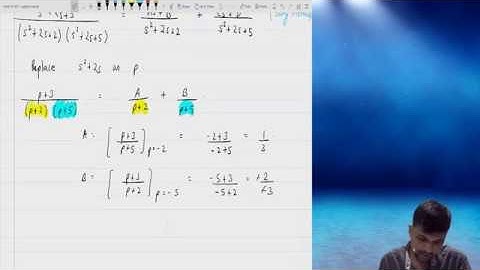 (s²+2s+2)(s²+2s+5) s²+2s+2 s²+2s+5
Replace s²+2s as p
p+3/(p+2)(p+5) = A/p+2 + B/p+5
A = [p+3/p+5]p=-2 = -2+3/-2+5 = 1/3
B = [p+3/p+2]p=-5 = -5+3/-5+2 = +2/+3